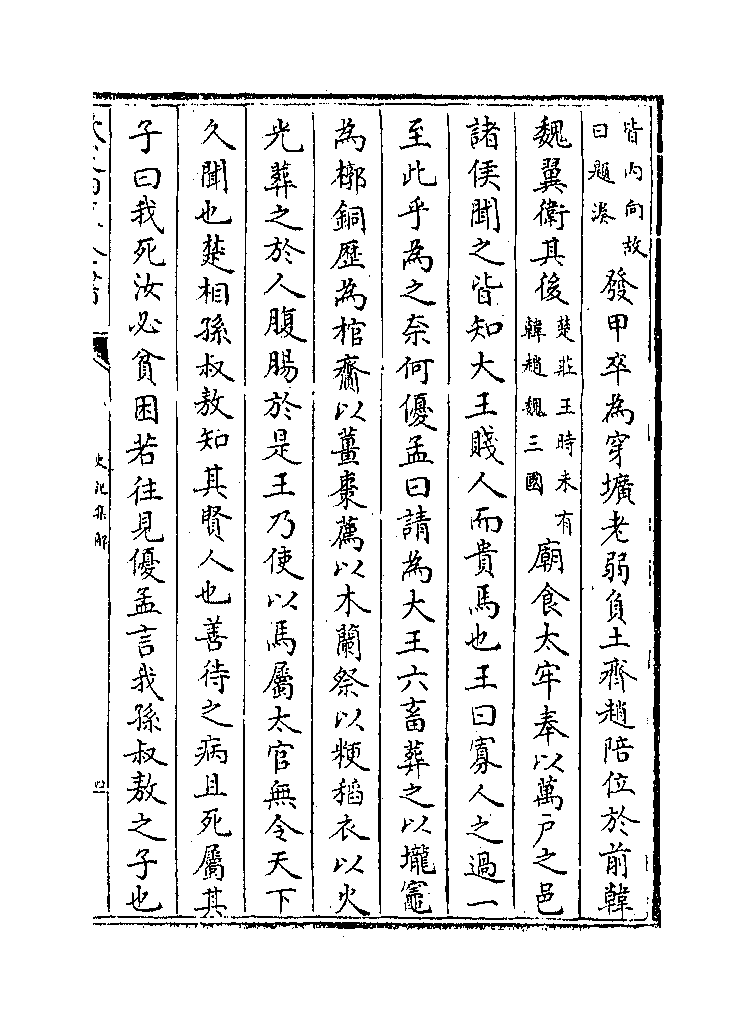 皆内向故曰題湊發甲卒為穿壙老弱負土齊趙陪位於前韓
魏翼衛其後楚莊王時未有韓趙魏三國廟食太牢奉以萬戸之邑
諸侯聞之皆知大王賤人而貴馬也王曰寡人之過一
至此乎為之奈何優孟曰請為大王六畜葬之以壠竈
為槨銅歴為棺齎以薑棗薦以木蘭祭以粳稻衣以火
光葬之於人腹腸於是王乃使以馬屬太官無令天下
久聞也楚相孫叔敖知其賢人也善待之病且死屬其
子曰我死汝必貧困若往見優孟言我孫叔敖之子也
史記集解
四